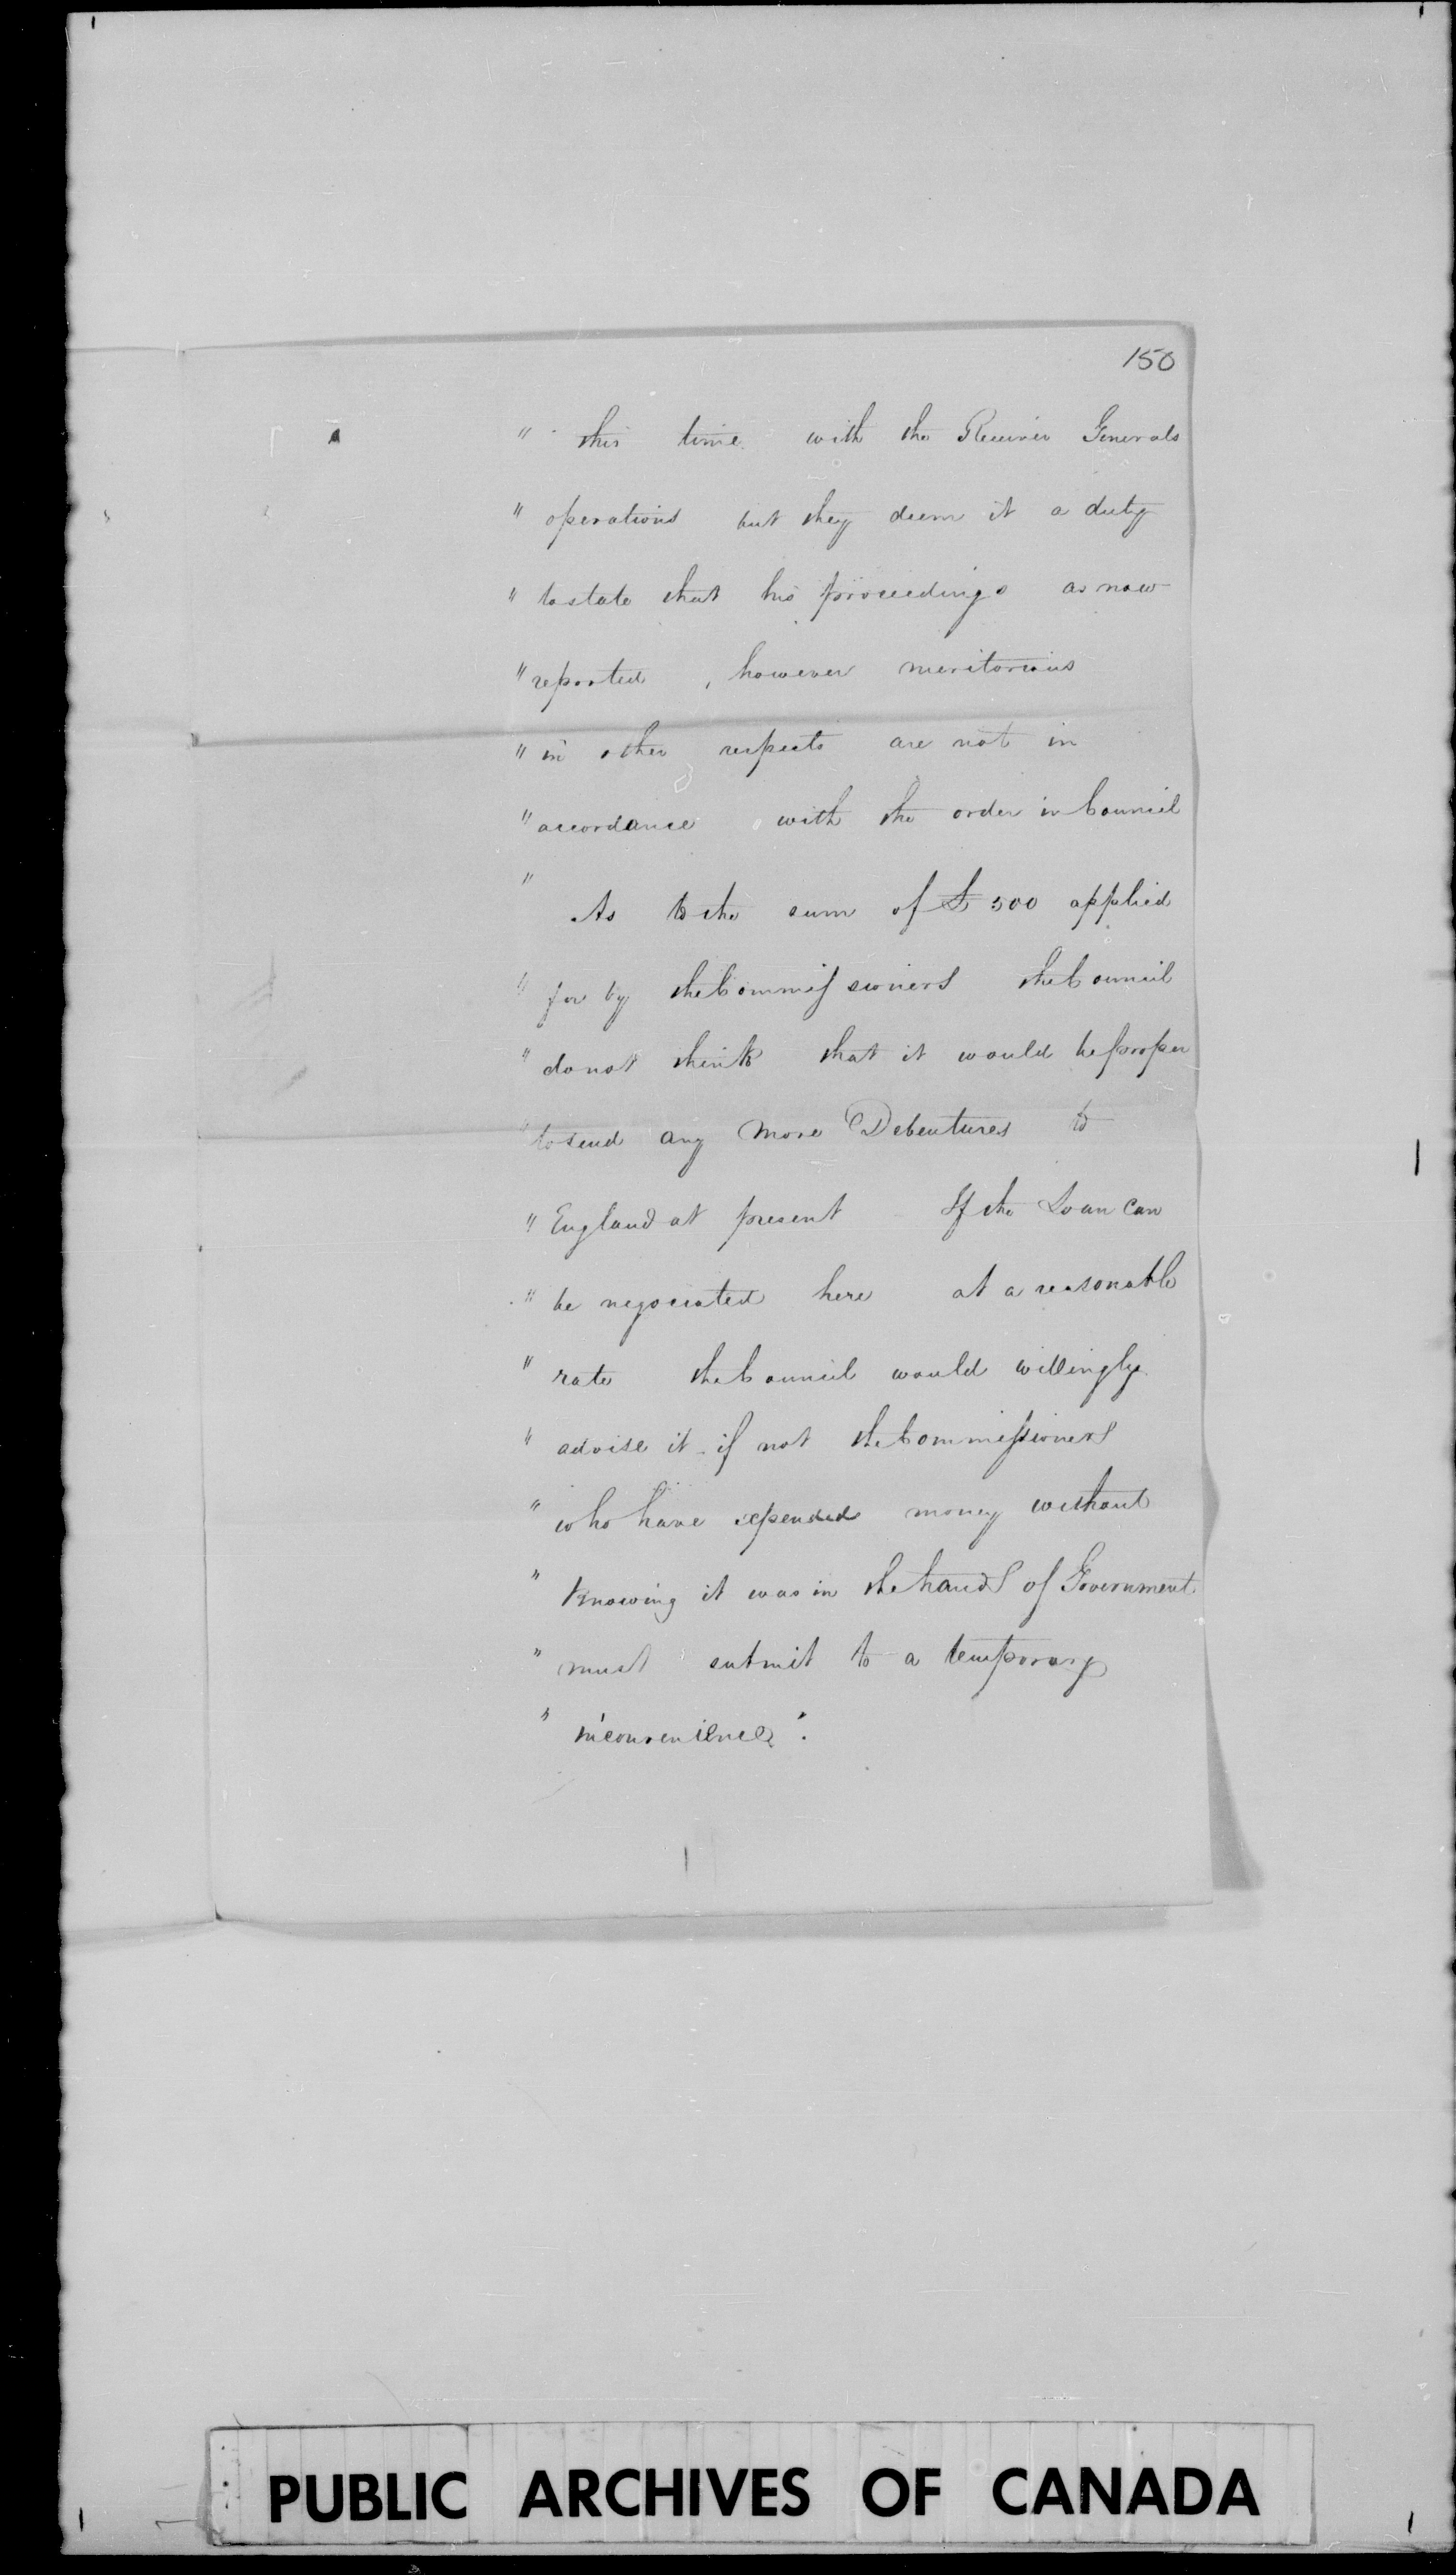 150
" this time with the Receiver Generals
" operations but they deem it a duty
" to state that his proceedings as now
" reported, however meritorious
" in other respects are not in
" accordance with the order in Council
" As to the sum of £500 applied
" for by the Commissioners the Council
" do not think that it would be proper
" to send any more Debentures to
" England at present If the Loan can
" be negociated here at a reasonable
" rate the Council would willingly
" advise it - if not the Commissioners
" who have expended money without
" knowing it was in the hands of Government
" must submit to a temporary
" inconvenience".
PUBLIC ARCHIVES OF CANADA